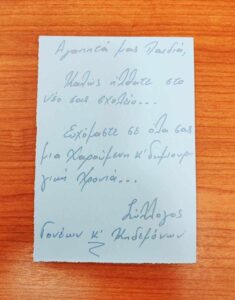 Αγαπητά μας Παιδιά,
Καλώς ήλθατε στο
νέο σας σχολείο...
Ευχόμαστε σε όλα σας
μια Χαρούμενη κ' δημιουρ-
γική Χρονιά...
Σύλλογος
Γονέων κ' Κηδεμόνων